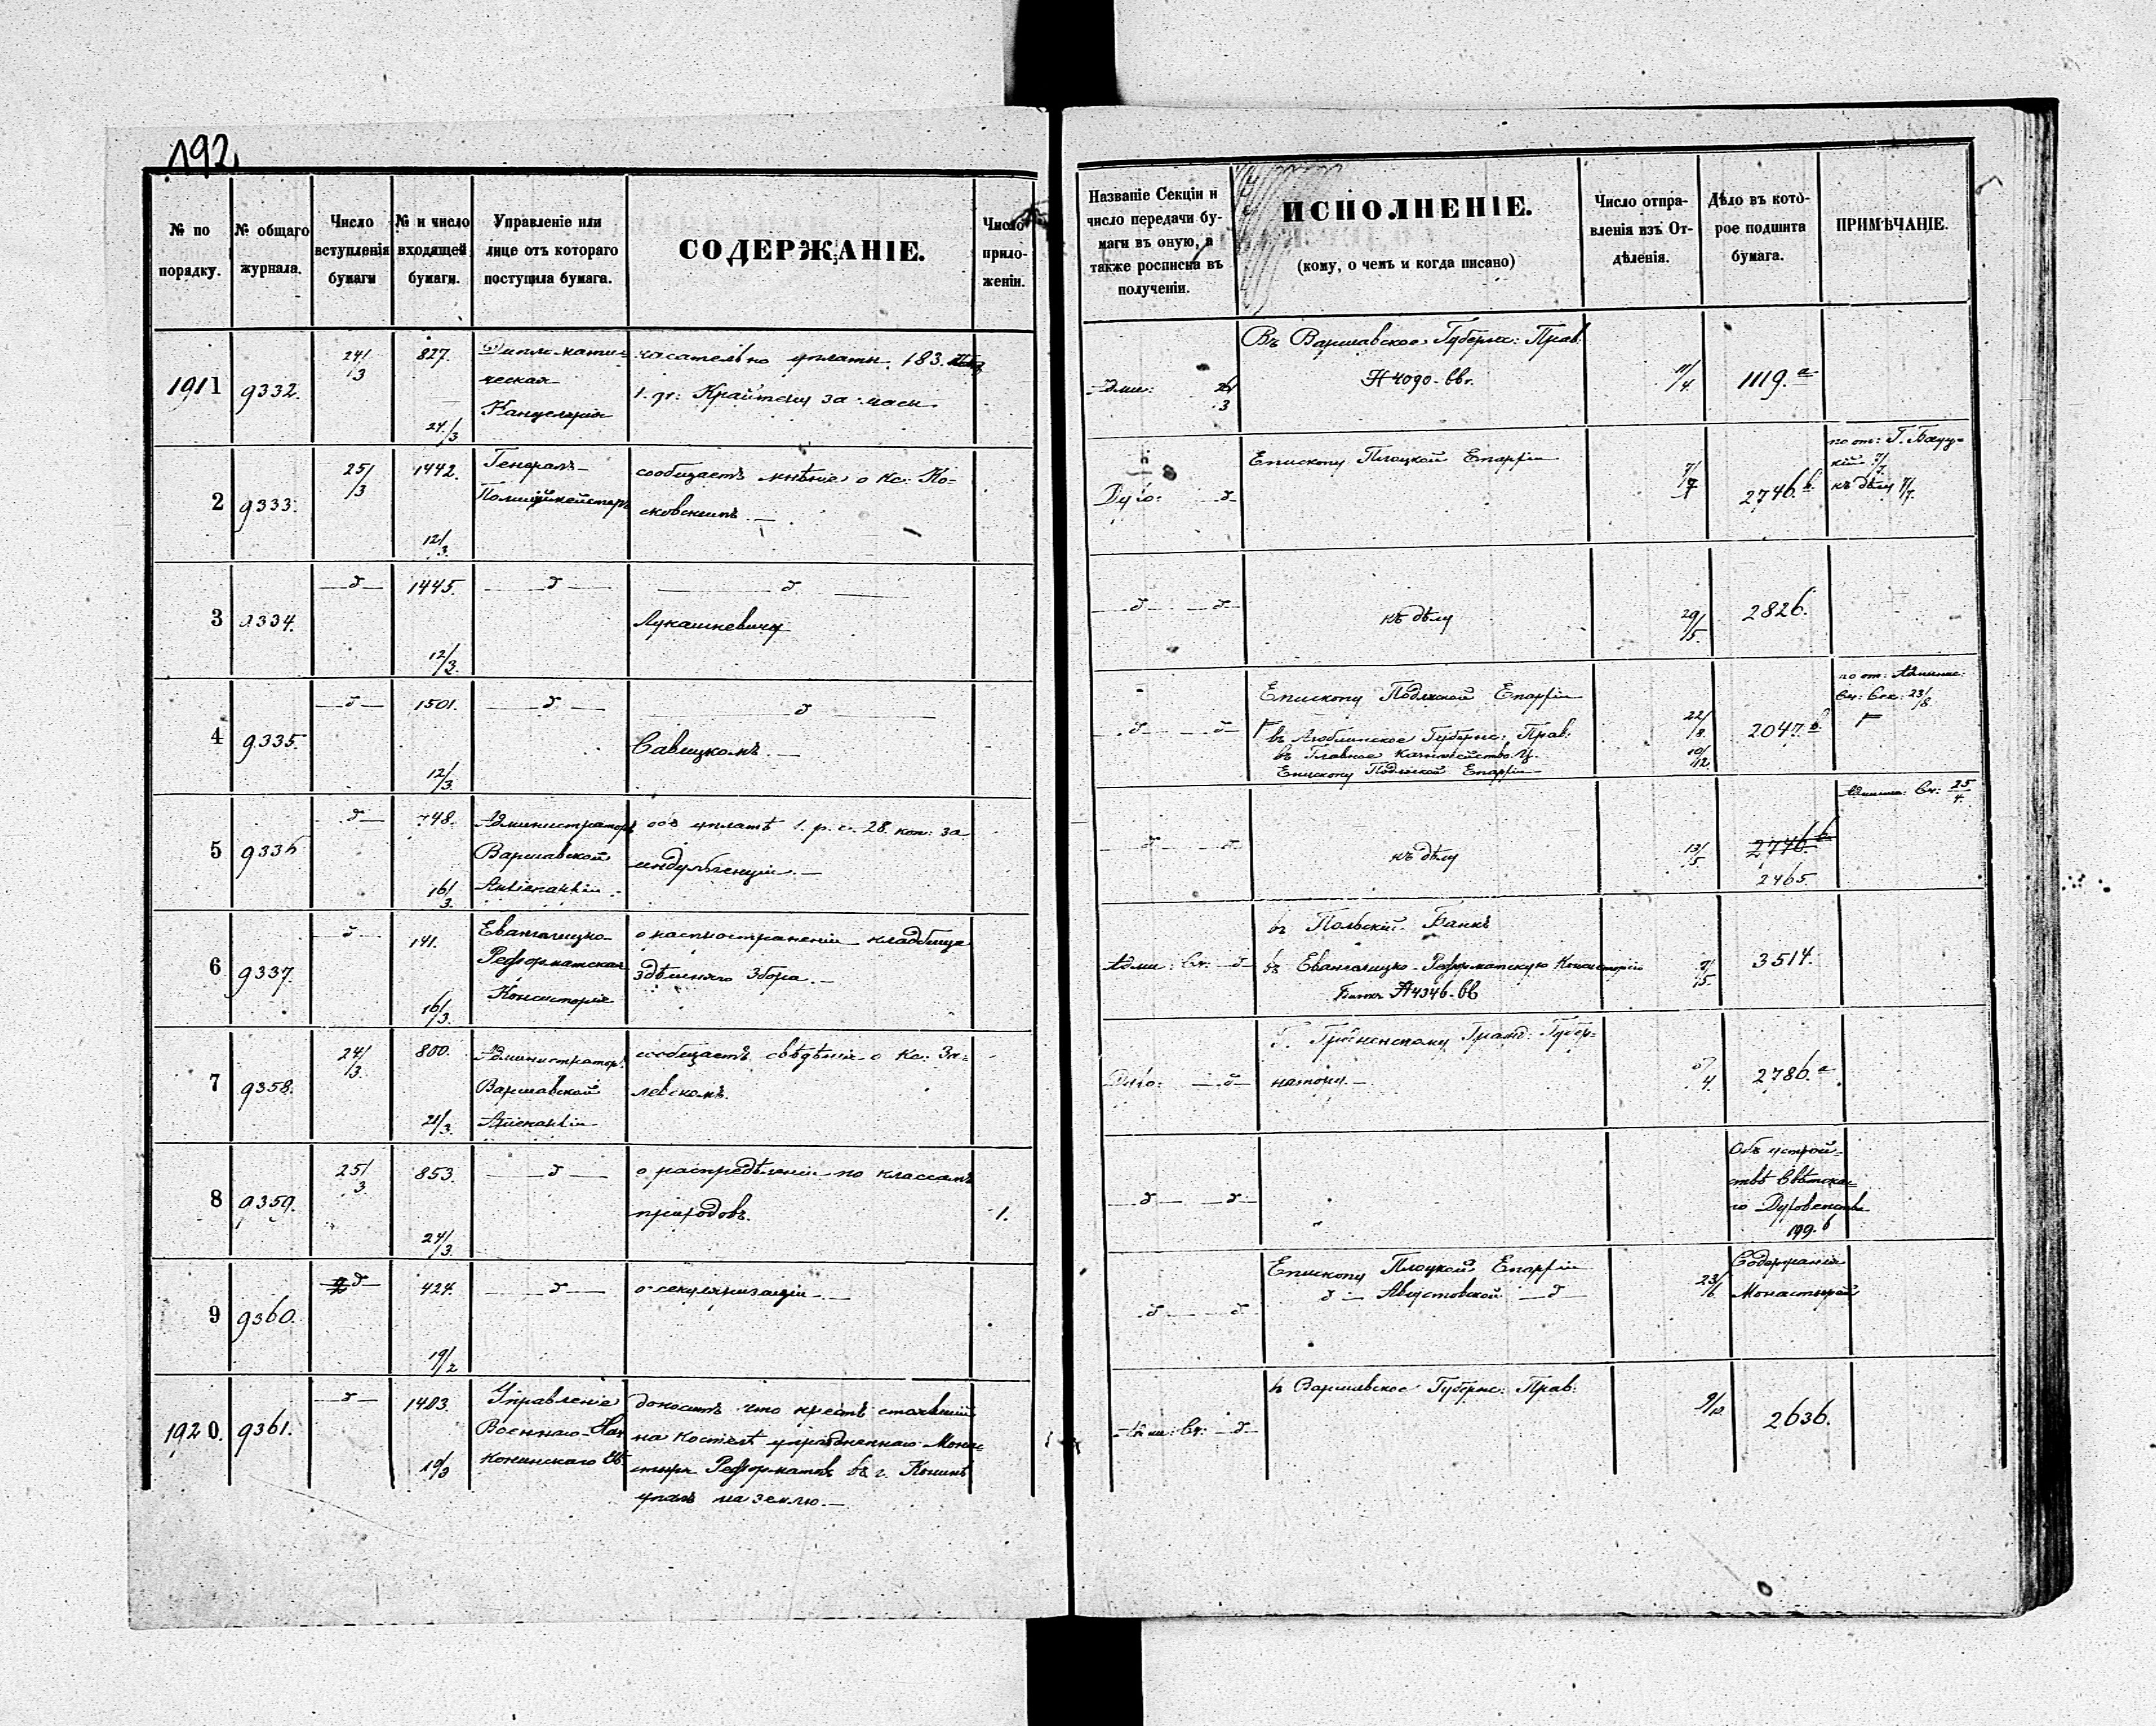 192
№ по порядку.
№ общаго журнала.
Число вступленія бумаги
№ и число входящей бумаги.
Управленіе или лице отъ котораго поступила бумага.
СОДЕРЖАНІЕ.
Число приложеніи.
1911
9332.
24/3
827.
24/3
Дипломати-
ческая
Канцелярія
касательно уплаты 183.
1. гр: Крайтеру за
2
9333.
25/3
1442.
12/3
Генералъ-
Полицмейстеръ
сообщаетъ мнѣніе о Кс: Ко-
сковскимъ.—
3
9334.
—д—
1445.
12/3
—д—
—д—
Лукашкевичу
4
9335.
—д—
1501.
12/3
—д—
—д—
Савицкомъ.—
5
9336
д—
748.
16/3
Администраторъ
Варшавской
Архіепархіи.
объ уплатѣ 1. р. с. 28. коп: за
индульгенціи.—
6
9337.
—д—
141.
16/3
Евангелицко-
Реформатская
Консисторія
о распространеніи кладбища
здѣшняго Збора.—
7
9358.
24/3
800.
21/3
Администраторъ
Варшавской
Архіепархіи
сообщаетъ свѣдѣнія о Кс: За-
левскомъ.
8
9359.
25/3
853.
24/3
—д—
о распредѣленіи по классамъ
приходовъ.
1.
9
9360.
д
424.
19/2
—д—
о секуляризаціи.—
1920.
9361.
—д—
1403.
19/3
Управленіе
Военнаго Нач
Конинскаго От
доноситъ что крестъ стоявшій
на костелѣ упраздненнаго Мона-
стыря Реформатовъ въ г. Конинѣ
упалъ на землю.—
Названіе Секціи и
число передачи бу-
маги въ оную, а
также росписка въ
полученіи.
ИСПОЛНЕНІЕ.
(кому, о чемъ и когда писано)
Число отпра-
вленія изъ От-
дѣленія.
Дѣло въ кото-
рое подшита
бумага.
ПРИМѢЧАНІЕ.
Адми: 26/3
Въ Варшавское Губернс: Прав.
№ 4090-ввг.
11/4
1119.a
Духо: —д
Епископу Плоцкой Епархіи
7/7
2746.b
по от: Г.
къ дѣлу 7/7.
—д— —д—
къ дѣлу
29/5.
2826.
—д— —д—
Епископу Подляской Епархіи
въ Люблинское Губернс: Прав:
въ Главное Казначейство Ц.
Епископу Подляской Епархіи
22/8.
10/12.
2047.b
по от: Админис:
Сп: Сек: 23/8.
д— д—
къ дѣлу
13/5
2746.b
2465.
Админис: Сп: 25/4.
Адми: Сп: —д
въ Польскій Банкъ
въ Евангелицко-Реформатскую Консисторію
Банкъ № 4346-вв
9/5.
3514.
Духо: —д—
Г. Гродненскому Гражд: Губер-
натору.—
5/4
2786.a
—д— —д—
Объ устрой-
ствѣ Свѣтска-
го Духовенства
199.b
д— —д
Епископу Плоцкой Епархіи
д— Августовской —д—
23/6
Содержаніе
Монастырей
Адми: Сп: —д—
въ Варшавское Губернс: Прав:
9/10.
2636.